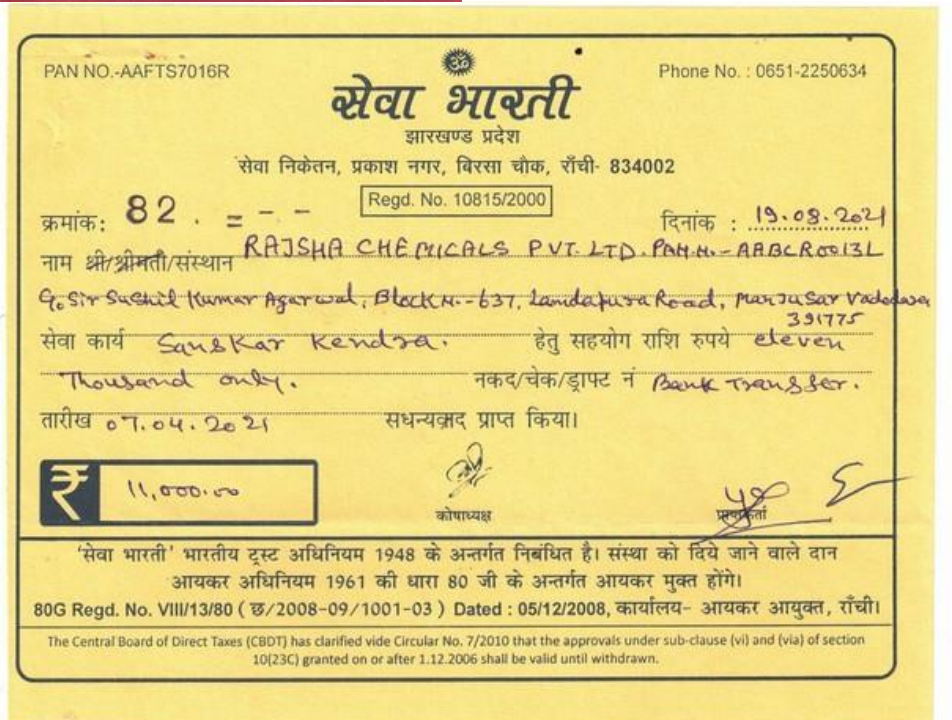 PAN NO.-AAFTS7016R
Phone No. : 0651-2250634
ॐ
सेवा भारती
झारखण्ड प्रदेश
सेवा निकेतन, प्रकाश नगर, बिरसा चौक, राँची- 834002
Regd. No. 10815/2000
क्रमांक: 82. = - -
दिनांक : 19.08.2021
नाम श्री/श्रीमती/संस्थान RAJSHA CHEMICALS PVT. LTD. PAN.N.-AABCR0013L
C/o Sir Sushil Kumar Agarwal, Block N.-637, Landapura Road, Manjusar Vadodara
391775
सेवा कार्य Sanskar Kendra. हेतु सहयोग राशि रुपये eleven
Thousand only. नकद/चेक/ड्राफ्ट नं Bank Transfer.
तारीख 07.04.2021 सधन्यवाद प्राप्त किया।
₹ 11,000.00
कोषाध्यक्ष
प्राप्तकर्ता
'सेवा भारती' भारतीय ट्रस्ट अधिनियम 1948 के अन्तर्गत निबंधित है। संस्था को दिये जाने वाले दान
आयकर अधिनियम 1961 की धारा 80 जी के अन्तर्गत आयकर मुक्त होंगे।
80G Regd. No. VIII/13/80 ( छ/2008-09/1001-03 ) Dated : 05/12/2008, कार्यालय- आयकर आयुक्त, राँची।
The Central Board of Direct Taxes (CBDT) has clarified vide Circular No. 7/2010 that the approvals under sub-clause (vi) and (via) of section
10(23C) granted on or after 1.12.2006 shall be valid until withdrawn.